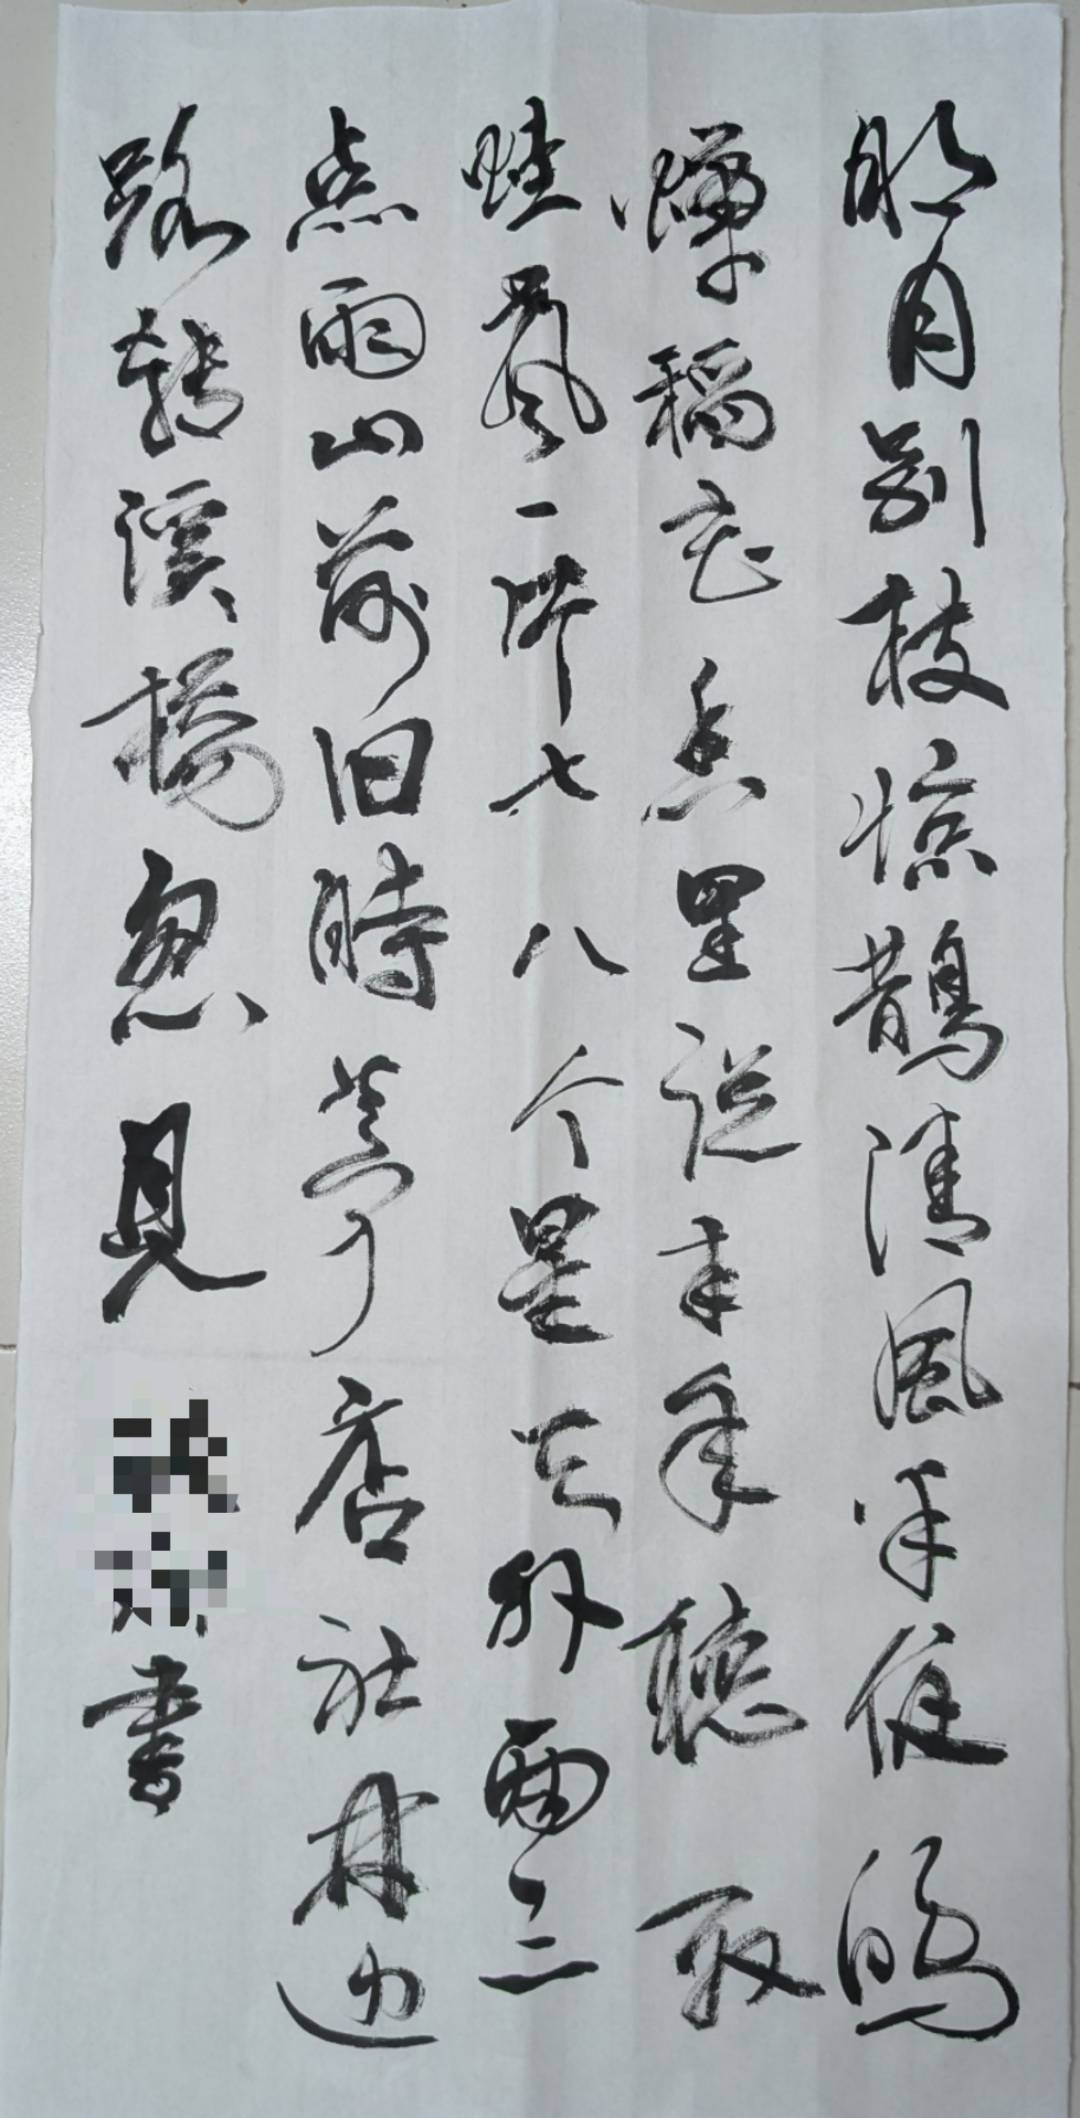 明月别枝惊鹊清风半夜鸣
蝉稻花香里说丰年听取
蛙声一片七八个星天外两三
点雨山前旧時茅店社林边
路转溪橋忽見
書